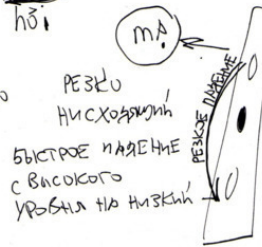 РЕЗКО
НИСХОДЯЩИЙ
БЫСТРОЕ ПАДЕНИЕ
С ВЫСОКОГО
УРОВНЯ НА НИЗКИЙ
РЕЗКОЕ ПАДЕНИЕ